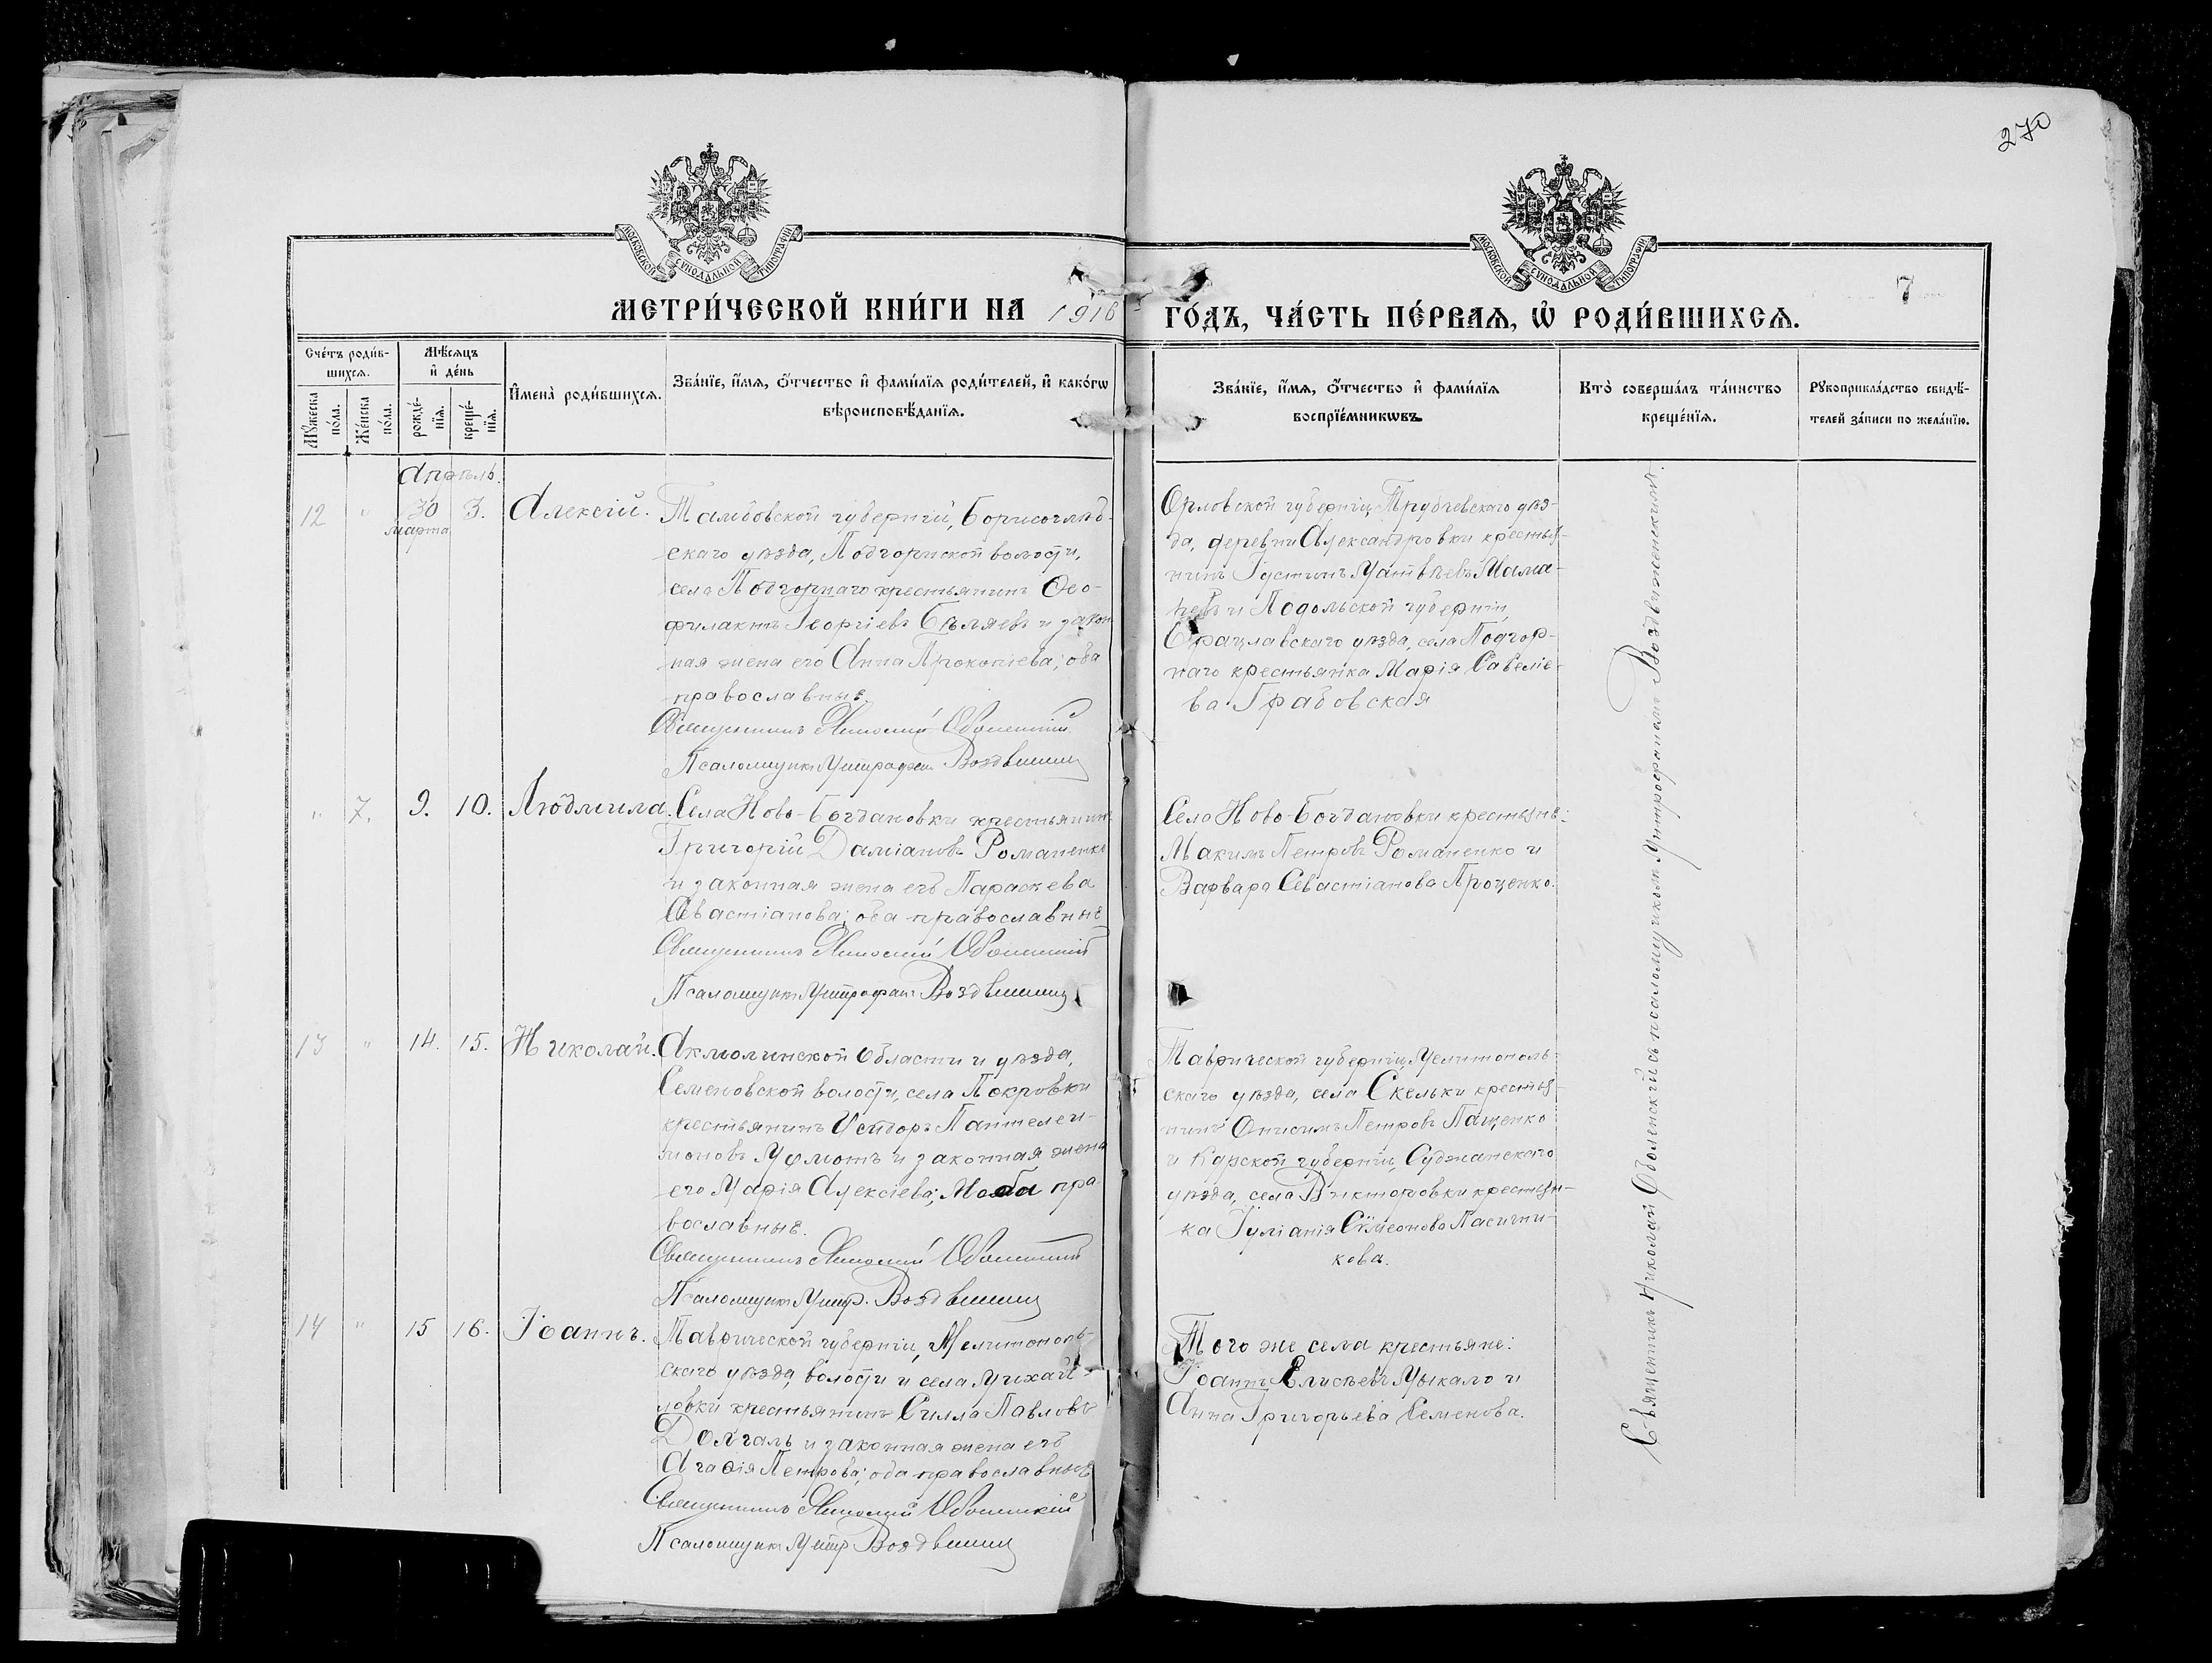 270
МОСКОВСКОЙ СѴНОДАЛЬНОЙ ТИПОГРАФІИ
МОСКОВСКОЙ СѴНОДАЛЬНОЙ ТИПОГРАФІИ
7
МЕТРИ́ЧЕСКОЙ КНИ́ГИ НА 1916 ГО́ДЪ, ЧА́СТЬ ПЕ́РВАЯ, Ѡ҆ РОДИ́ВШИХСЯ.
Сче́тъ роди́в-
шихся.
Мѣ́сяцъ
и҆ де́нь
Мꙋ́жеска по́ла.
Же́нска по́ла.
рожде́-
нїя.
креще́-
нїя.
И҆мена̀ роди́вшихся.
Зва́нїе, и҆́мя, ѻ҆́тчество и҆ фами́лїя роди́телей, и҆ како́гѡ
вѣроисповѣ́данїя.
Зва́нїе, и҆́мя, ѻ҆́тчество и҆ фами́лїя
воспрїе́мникѡвъ.
Кто̀ соверша́лъ та́инство
креще́нїя.
Рꙋкоприкла́дство свидѣ́-
телей за́писи по жела́нїю.
Апрѣль.
12 " 30 3. Алексій.
марта
Тамбовской губерніи, Борисоглѣб-
скаго уѣзда, Подгорнской волости,
села Подгорнаго крестьянинъ Ѳео-
филактъ Георгіевъ Бѣляевъ и закон
ная жена его Анна Прокопіева; оба
православные.
Священникъ Николай Оболенскій
Псаломщикъ Митрофан Воздвиженск
Орловской губерніи, Трубчевскаго уѣз-
да, деревни Александровки крестья-
нинъ Іустинъ Матвѣевъ
и Подольской губерніи,
Брацлавскаго уѣзда, села Подгор-
наго крестьянка Марія Савеліе-
ва Грабовская
" 7. 9. 10. Людмила.
Села Ново-Богдановки крестьянинъ
Григорій Даміановъ Романенко
и законная жена его Параскева
Севастіанова; оба православные
Священникъ Николай Оболенскій
Псаломщикъ Митрофан Воздвиженск
Села Ново-Богдановки крестьяне:
Максимъ Петровъ Романенко и
Варвара Севастіанова Проценко.
13 " 14. 15. Николай.
Акмолинской области и уѣзда,
Семеновской волости, села Покровки
крестьянинъ Исидоръ Пантелеи-
моновъ и законная жена
его Марія Алексіева; оба пра
вославные.
Священникъ Николай Оболенскій
Псаломщикъ Митр. Воздвиженск
Таврической губерніи, Мелитополь-
скаго уѣзда, села Скельки крестья-
нинъ Онисимъ Петровъ Пащенко
и Курской губерніи, Суджанскаго
уѣзда, села Викторовки крестьян-
ка Іуліанія Сѵмеонова Пасични-
кова.
14 " 15 16. Іоаннъ.
Таврической губерніи, Мелитополь-
скаго уѣзда, волости и села Михай-
ловки крестьянинъ Силла Павловъ
Долгаль и законная жена его
Агаѳія Петрова; оба православные
Священникъ Николай Оболенскій
Псаломщикъ Митр Воздвиженск
Того же села крестьяне:
Іоаннъ Елисѣевъ Мыкало и
Анна Григорьева Семенова.
Священникъ Николай Оболенскій съ псаломщикомъ Митрофаномъ Воздвиженскимъ.